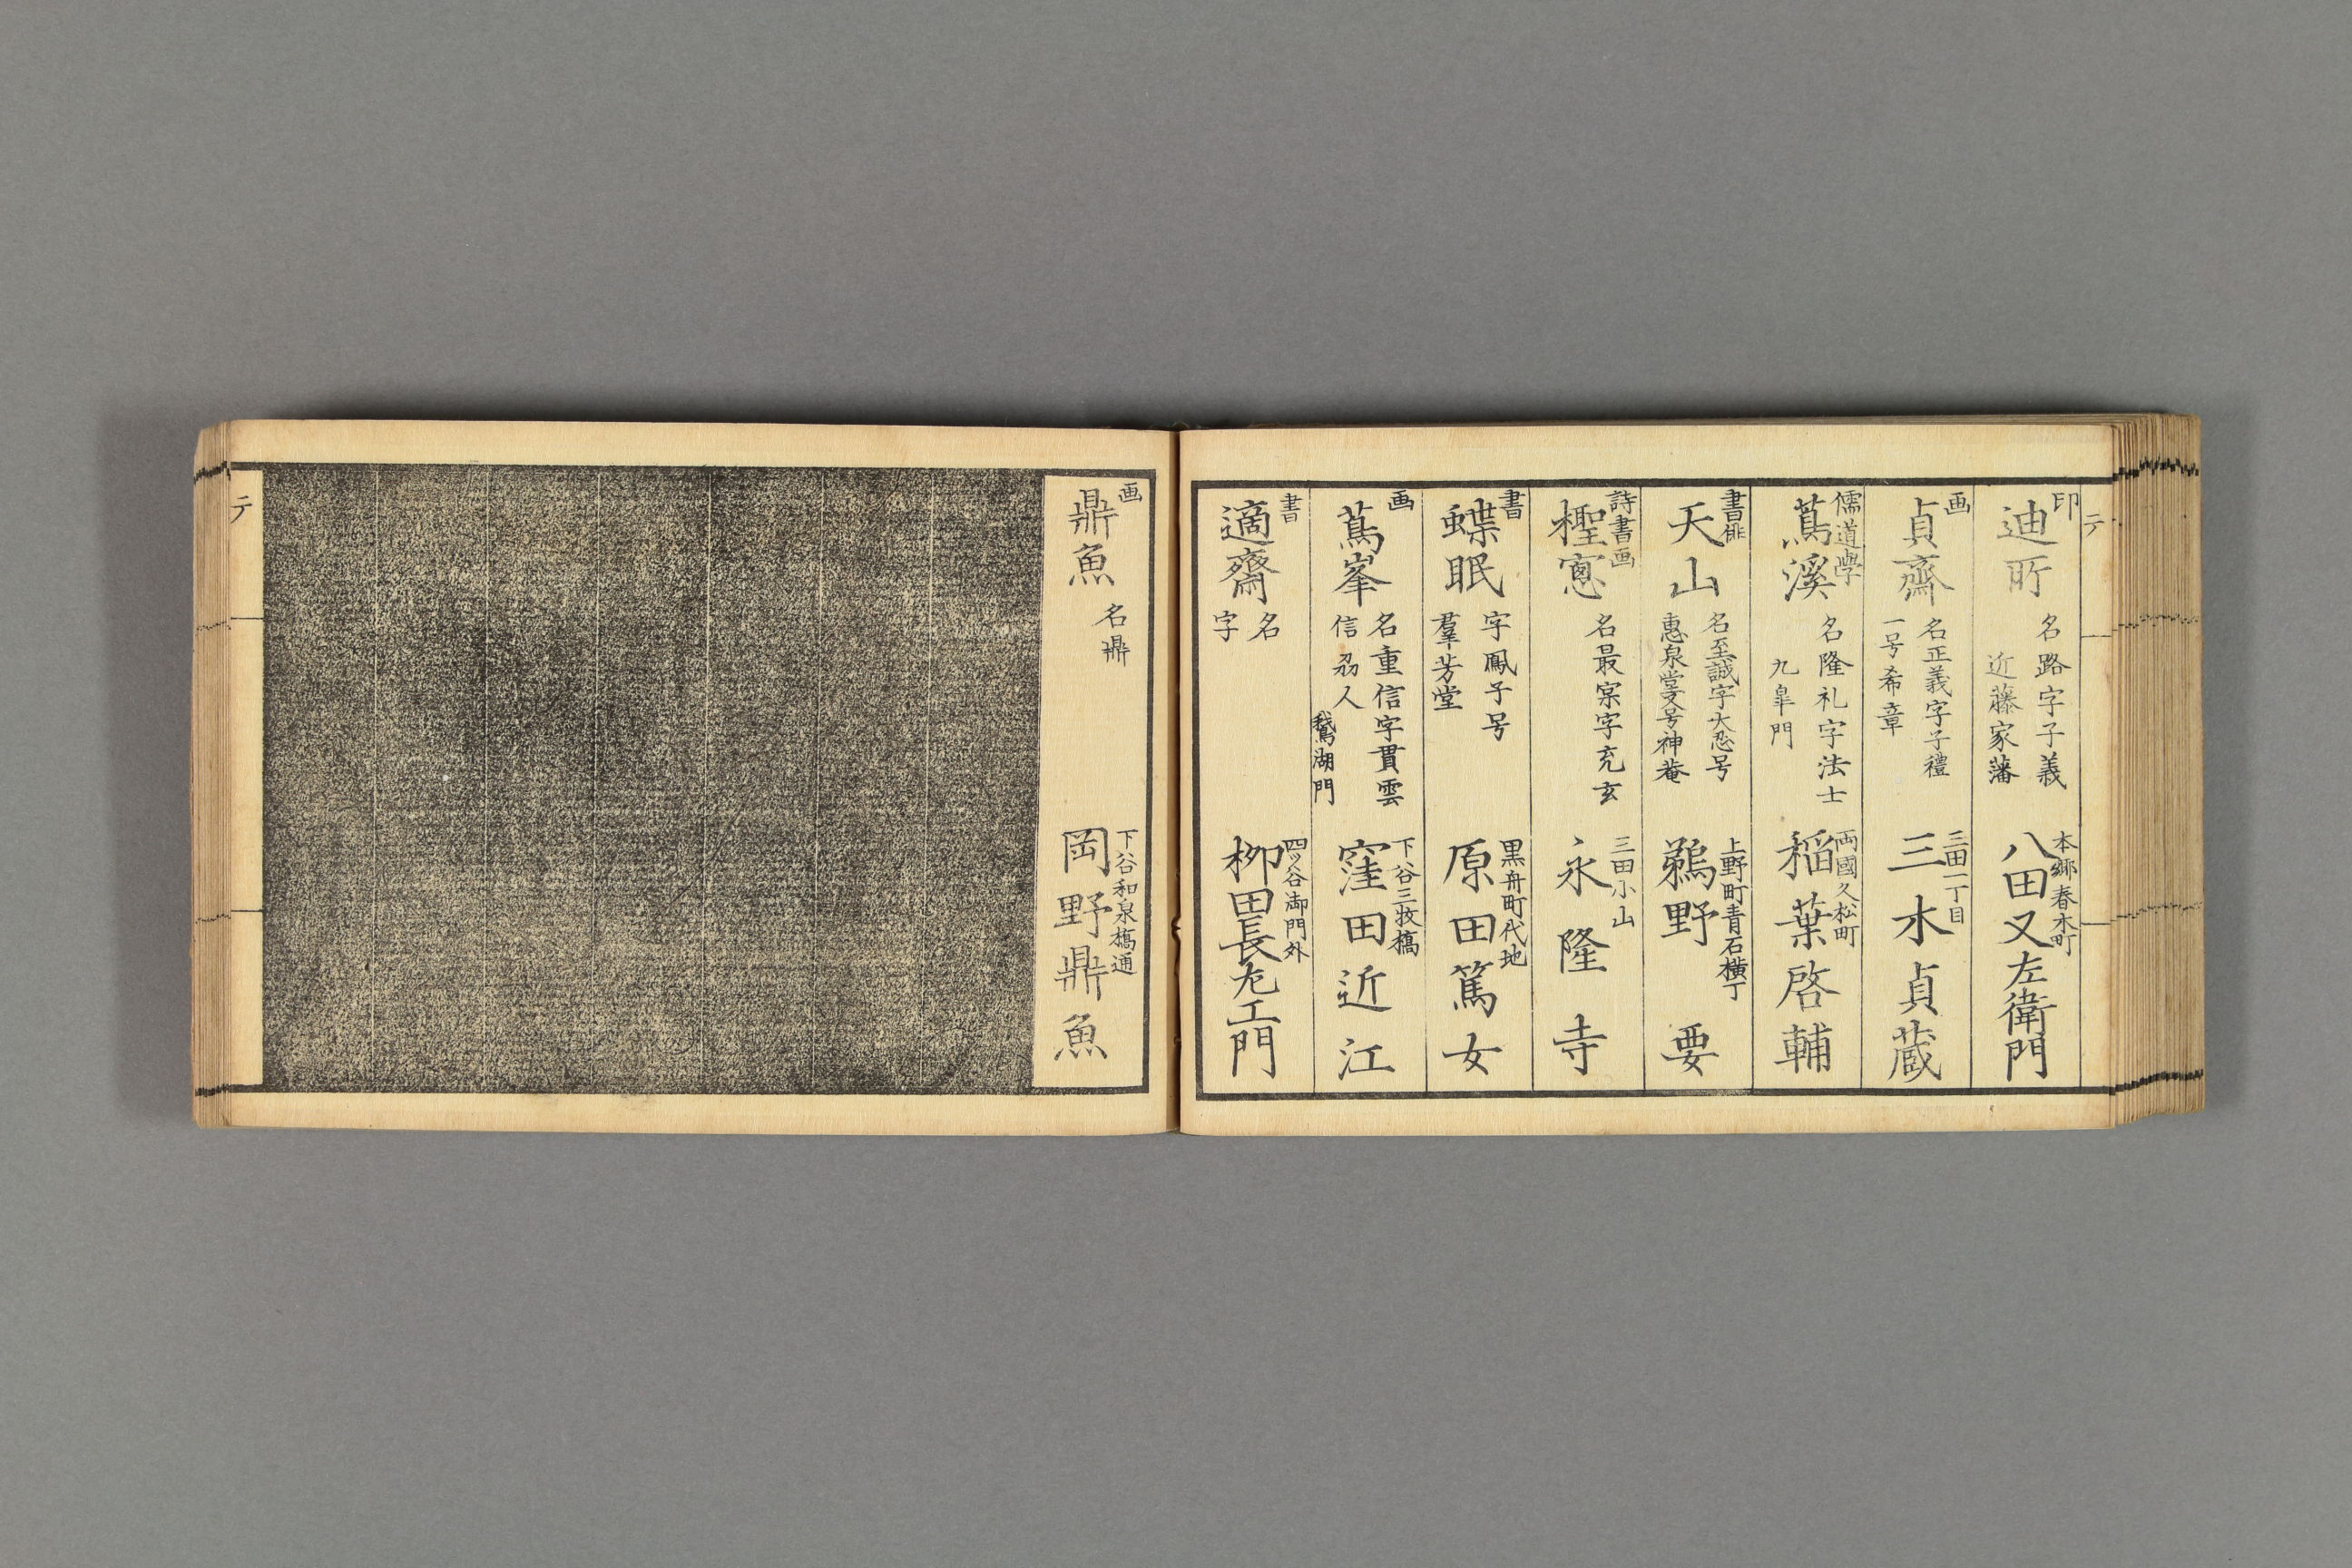 テ
印
迪所
名路字子義
近藤家藩
本郷春木町
八田又左衛門
画
貞齋
名正義字子禮
一号希章
三田一丁目
三木貞蔵
儒道學
蔦溪
名隆礼字法士
九皐門
両國久松町
稲葉啓輔
書俳
天山
名至誠字大忍号
惠泉堂又号神菴
上野町青石横丁
鵜野要
詩書画
檉窓
名最寀字充玄
三田小山
永隆寺
書
蝶眠
字鳳子号
羣芳堂
黒舟町代地
原田篤女
画
蔦峯
名重信字貫雲
信刕人
鵞湖門
下谷三枚橋
窪田近江
書
適齋
名
字
四ッ谷御門外
柳田長左工門
画
鼎魚
名鼎
下谷和泉橋通
岡野鼎魚
テ